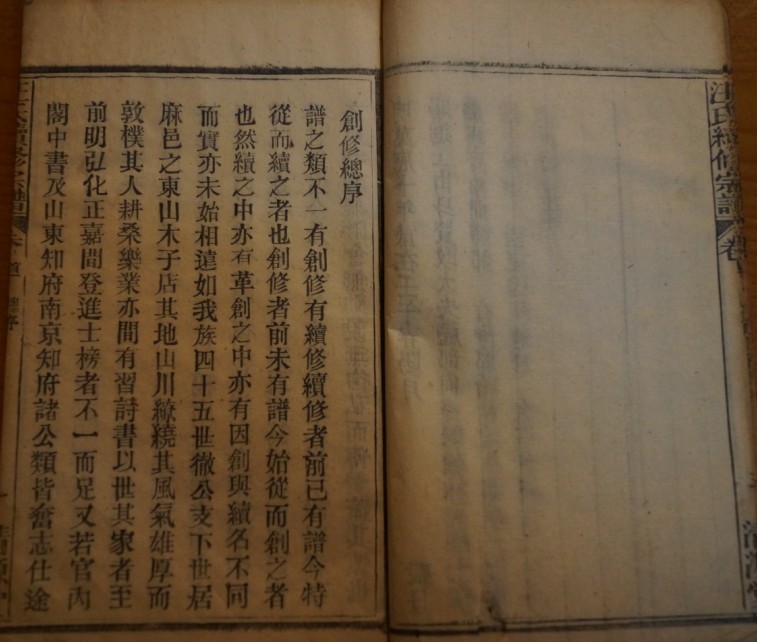 汪氏續修宗譜 卷
創修總序
譜之類不一有創修有續修續修者前已有譜今特
從而續之者也創修者前未有譜今始從而創之者
也然續之中亦有革創之中亦有因創與續名不同
而實亦未始相違如我族四十五世徹公支下世居
麻邑之東山木子店其地山川繚繞其風氣雄厚而
敦樸其人耕桑樂業亦間有習詩書以世其家者至
前明弘化正嘉間登進士榜者不一而足又若官內
閣中書及山東知府南京知府諸公類皆奮志仕途
汪氏續修宗譜 卷首 總序 一